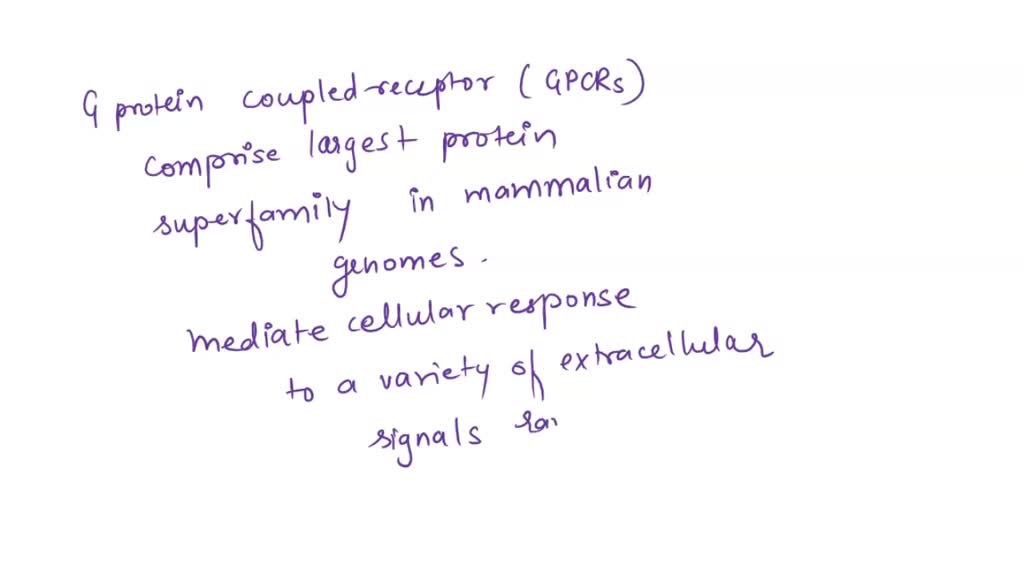 G protein coupled-receptor (GPCRs)
comprise largest protein
superfamily in mammalian
genomes.
mediate cellular response
to a variety of extracellular
signals